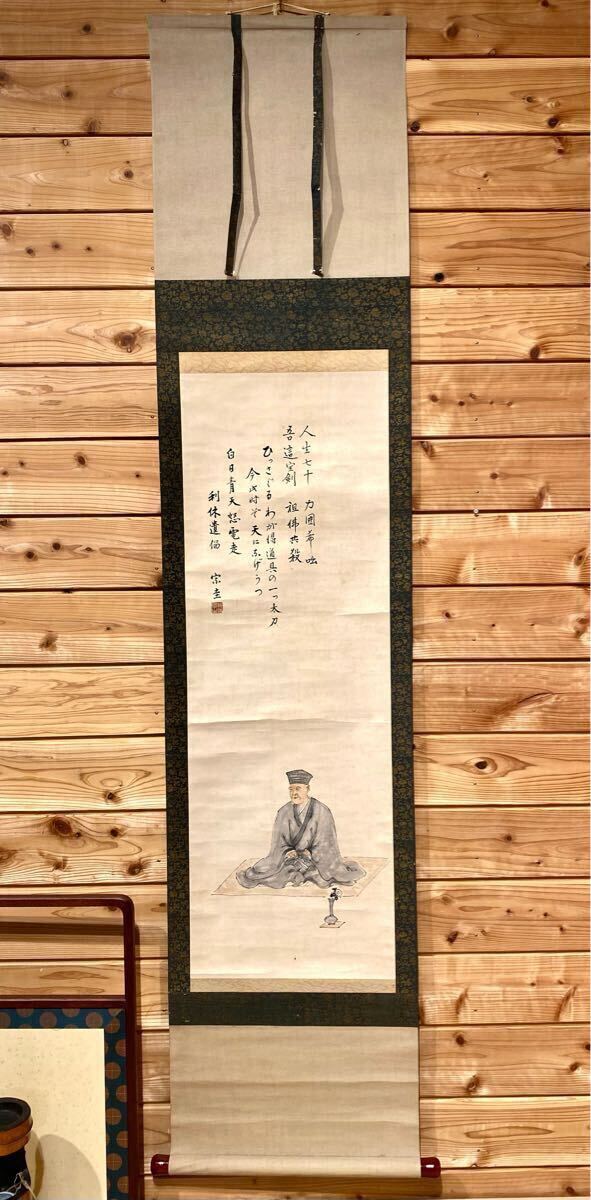 人生七十 力囲希咄
吾這宝剣 祖佛共殺
ひっさぐる わが得道具の一つ太刀
今此時ぞ 天になげうつ
白日青天怒電走
利休遺偈 宗圭